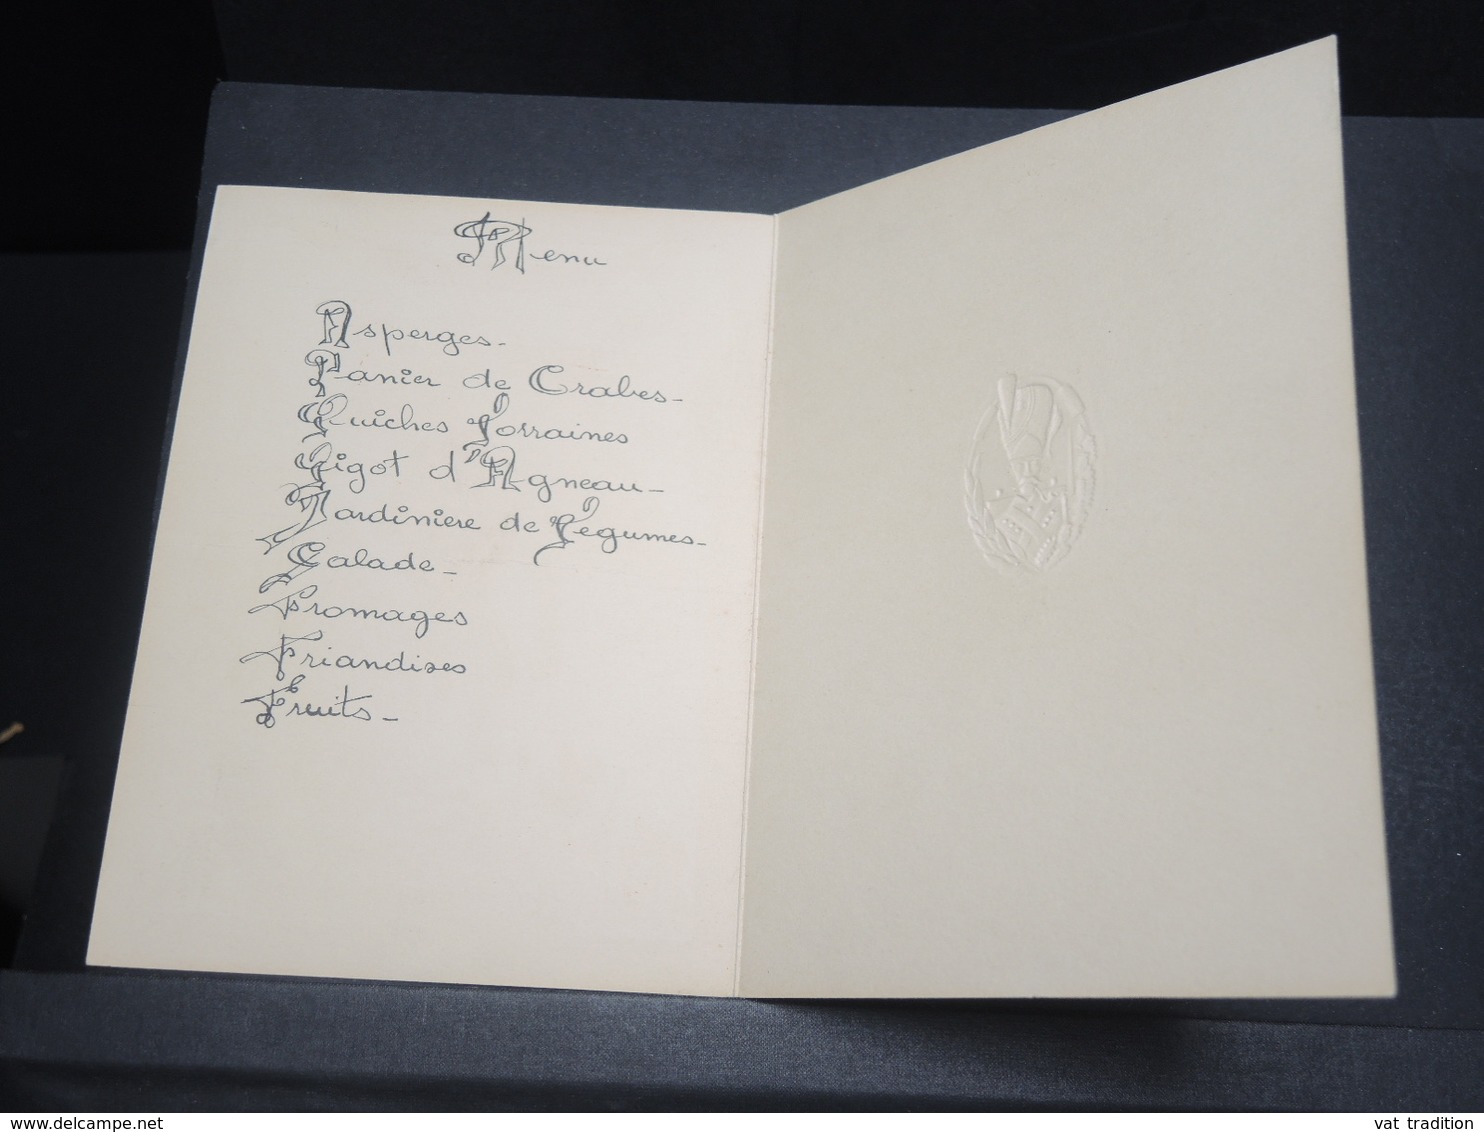 Menu
Asperges-
Panier de Crabes-
Quiches Lorraines
Gigot d'Agneau-
Jardinière de Légumes-
Salade-
Fromages
Friandises
Fruits-
www.delcampe.net
vat tradition